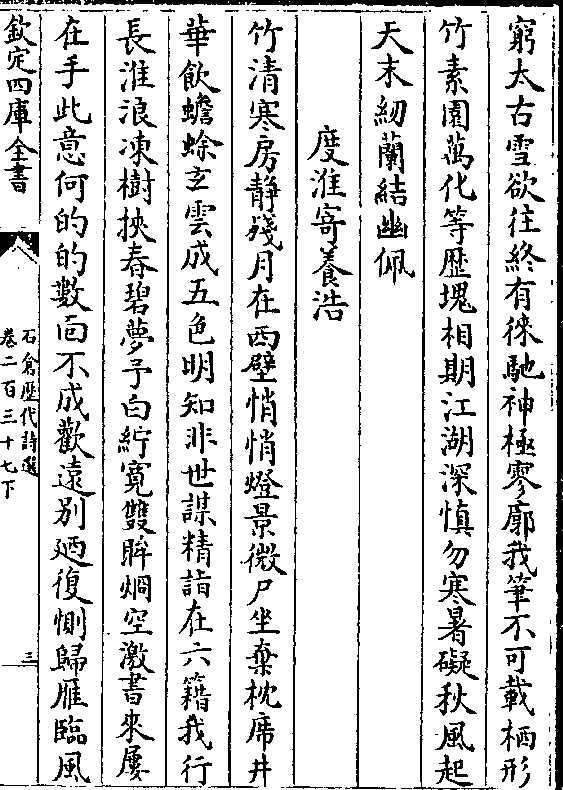 窮太古雪欲往終有徠馳神極寥廓我筆不可載栖形
竹素園萬化等歴塊相期江湖深慎勿寒暑礙秋風起
天末紉蘭結幽佩
度淮寄養浩
竹清寒房静殘月在西壁悄悄燈景微尸坐棄枕席井
華飲蟾蜍玄雲成五色明知非世謀精詣在六籍我行
長淮浪凍樹挾春碧夢子白紵寛雙眸烱空激書來屢
在手此意何的的數面不成歡遠别廼復惻歸雁臨風
欽定四庫全書
石倉歴代詩選
卷二百三十七下
三